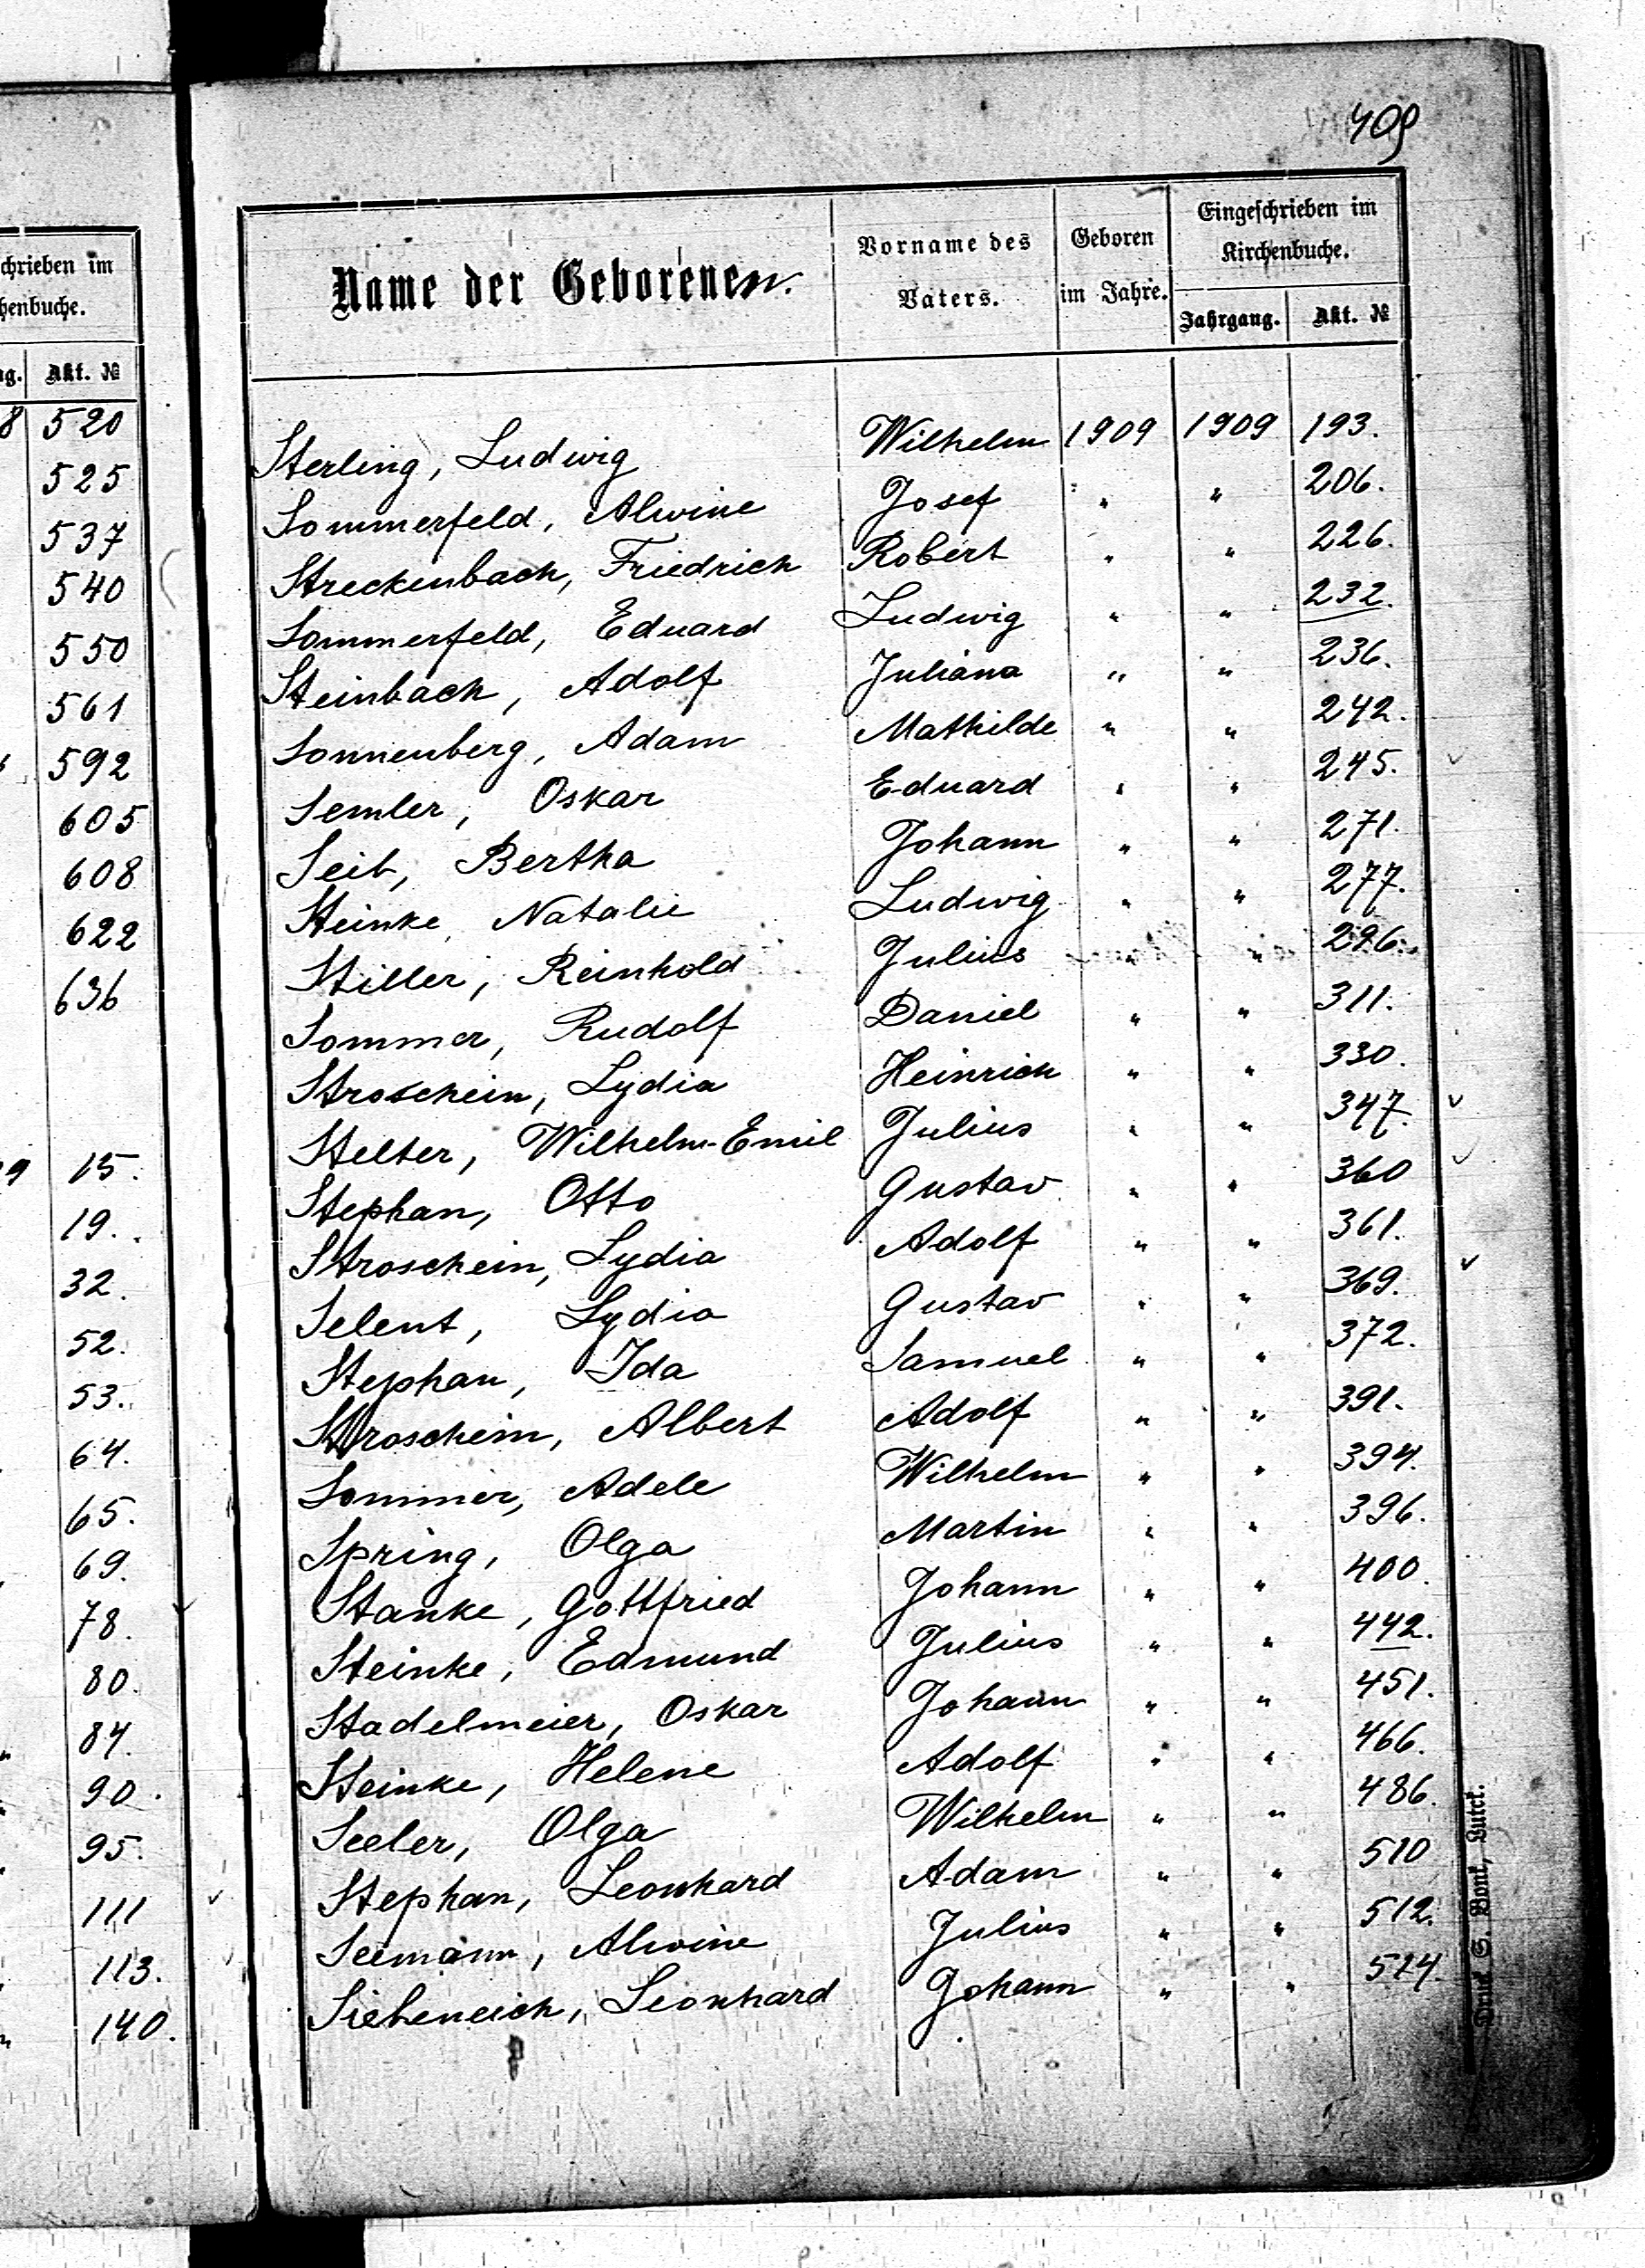 chrieben im
henbuche.
ng. Akt. №
8 520
525
537
540
550
561
592
605
608
622
636
9 15.
19.
32.
52.
53.
64.
65.
69.
78.
80.
84.
90.
95.
111
113.
140.
409
Name der Geborenen. Vorname des Vaters. Geboren im Jahre. Eingeschrieben im Kirchenbuche.
Jahrgang. Akt. №
Sterling, Ludwig Wilhelm 1909 1909 193.
Sommerfeld, Alwine Josef " " 206.
Streckenbach, Friedrich Robert " " 226.
Sommerfeld, Eduard Ludwig " " 232.
Steinbach, Adolf Juliana " " 236.
Sonnenberg, Adam Mathilde " " 242.
Semler, Oskar Eduard " " 245.
Seib, Bertha Johann " " 271.
Steinke, Natalie Ludwig " " 277.
Stiller, Reinhold Julius " " 296.
Sommer, Rudolf Daniel " " 311.
Stroschein, Lydia Heinrich " " 330.
Stelter, Wilhelm-Emil Julius " " 347.
Stephan, Otto Gustav " " 360
Stroschein, Lydia Adolf " " 361.
Selent, Lydia Gustav " " 369.
Stephan, Ida Samuel " " 372.
Stroschein, Albert Adolf " " 391.
Sommer, Adele Wilhelm " " 394.
Spring, Olga Martin " " 396.
Stanke, Gottfried Johann " " 400.
Steinke, Edmund Julius " " 442.
Stadelmeier, Oskar Johann " " 451.
Steinke, Helene Adolf " " 466.
Seeler, Olga Wilhelm " " 486.
Stephan, Leonhard Adam " " 510
Seemann, Alwine Julius " " 512.
Siebeneich, Leonhard Johann " " 524.
Druck S. Bonk, Luzk.